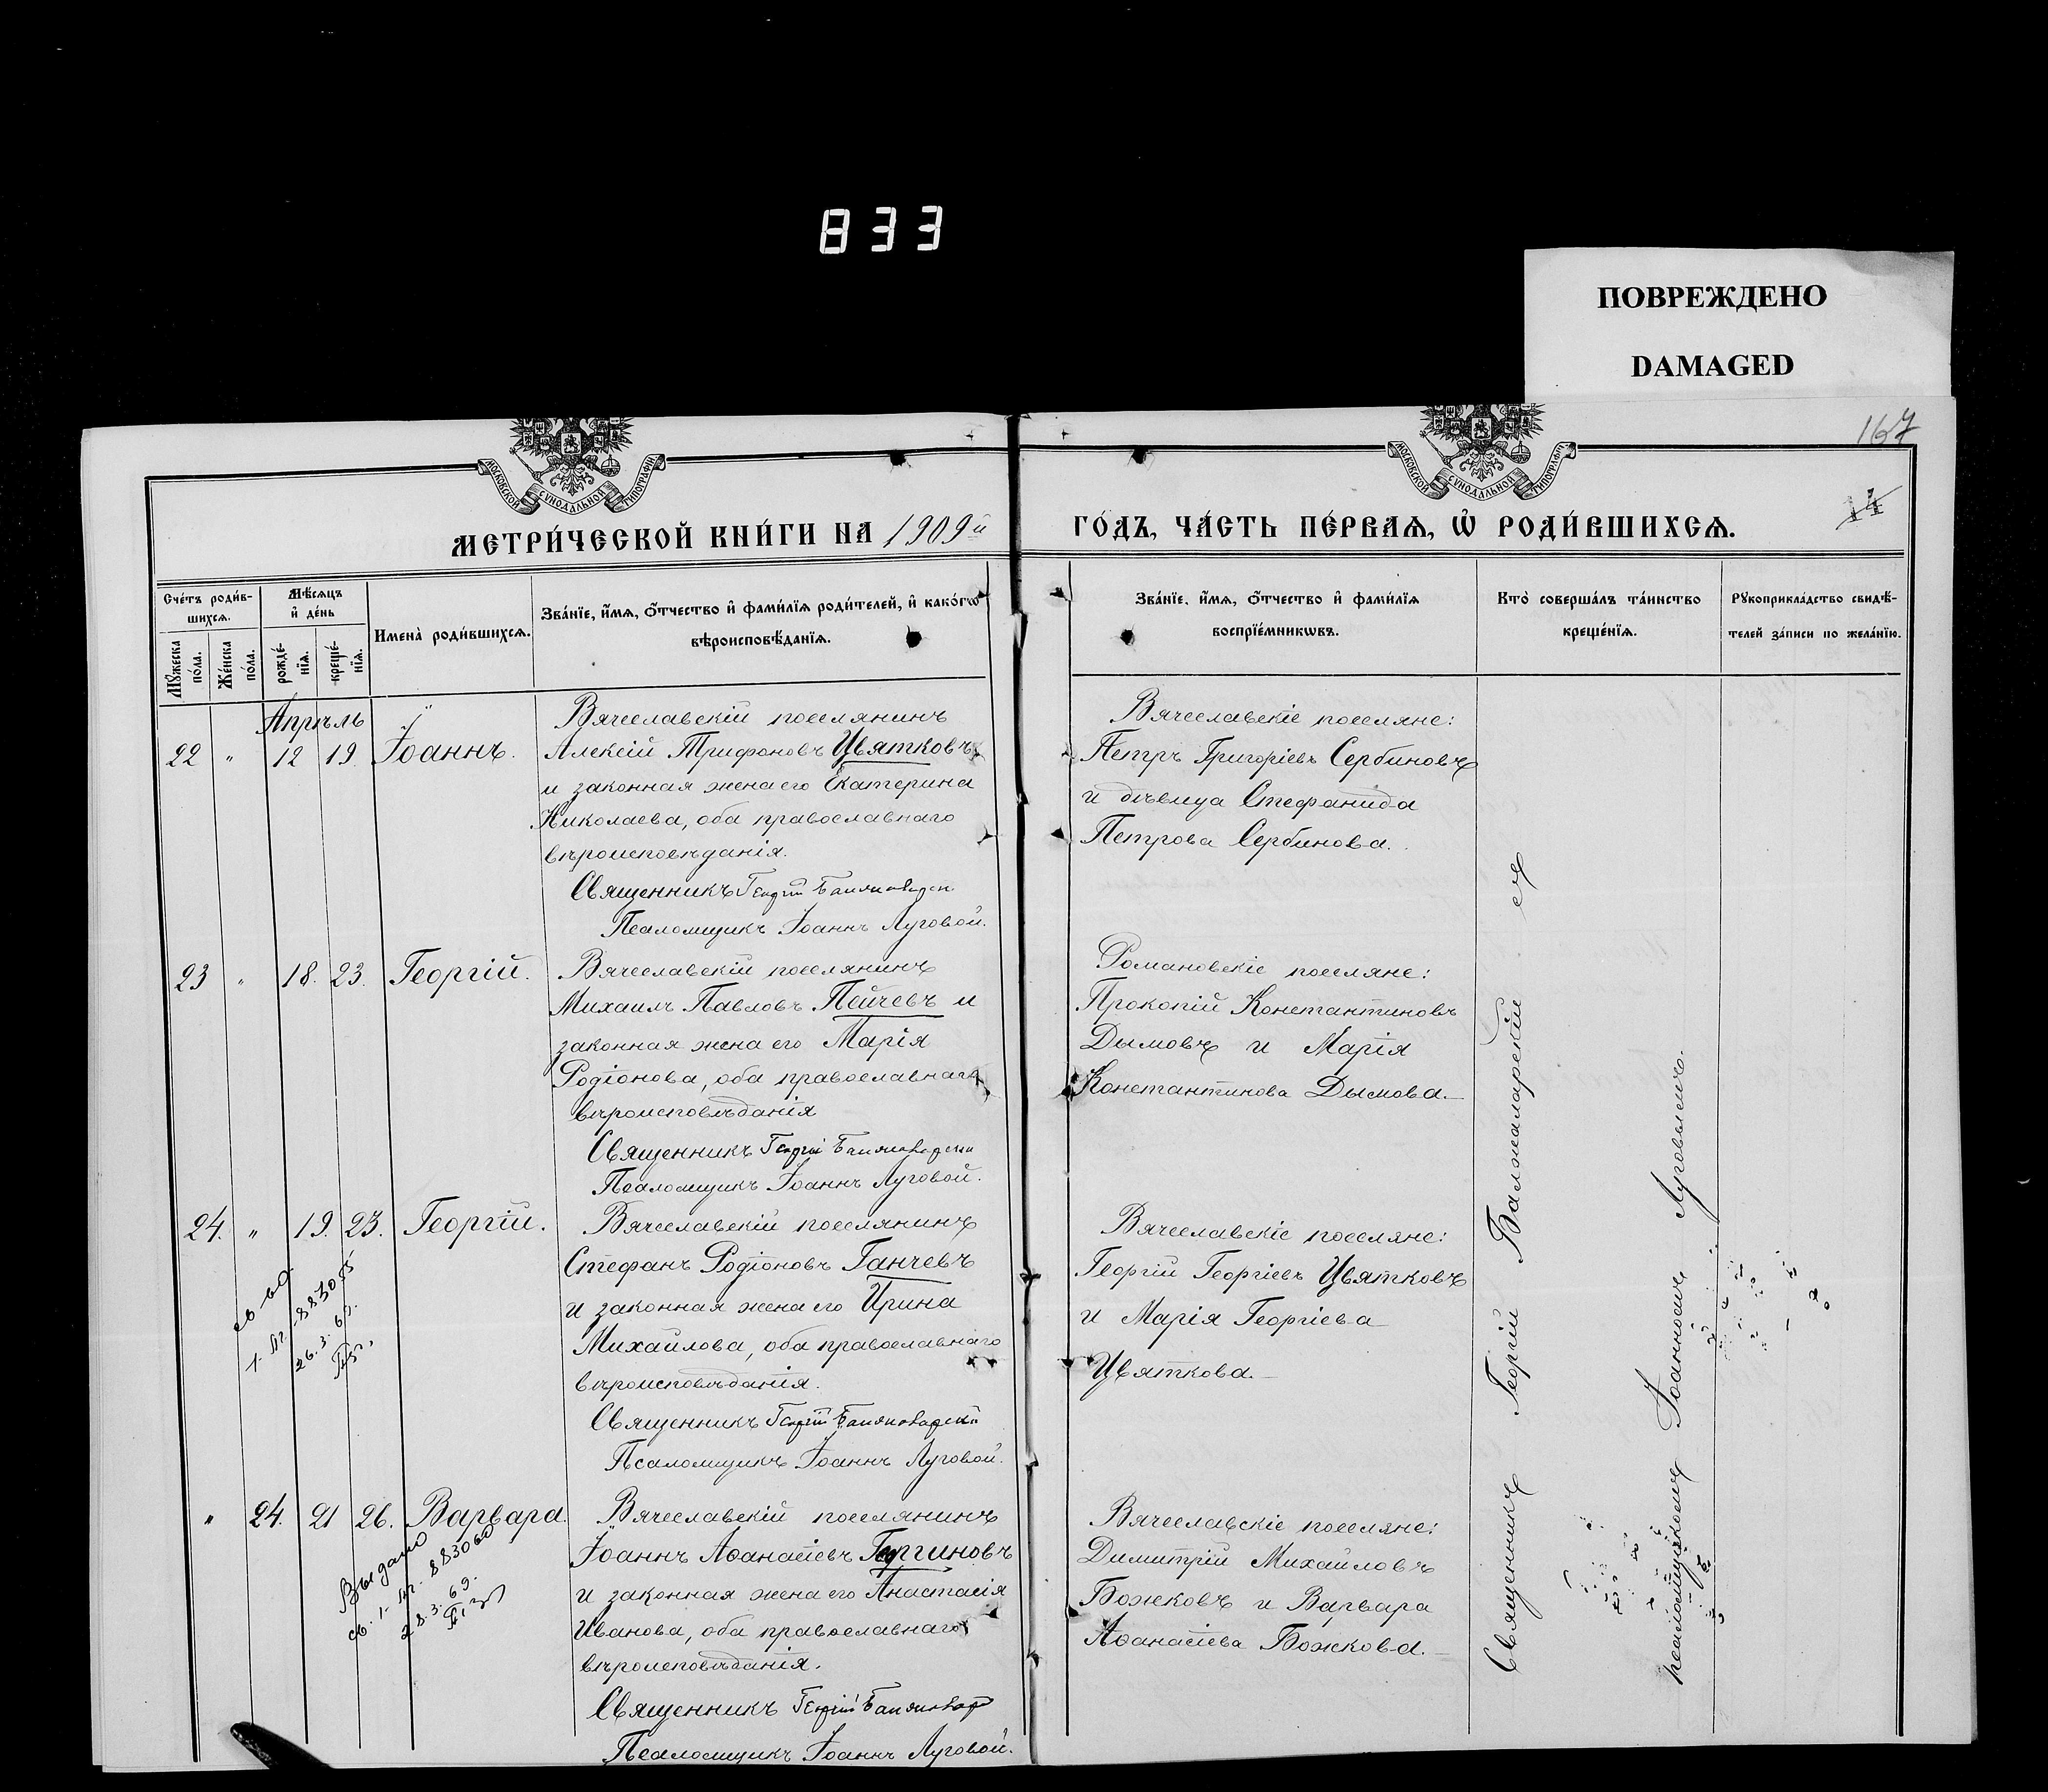 833
ПОВРЕЖДЕНО
DAMAGED
167
14
МОСКОВСКОЙ СУНОДАЛЬНОЙ ТИПОГРАФІИ
МОСКОВСКОЙ СУНОДАЛЬНОЙ ТИПОГРАФІИ
МЕТРИ́ЧЕСКОЙ КНИ́ГИ НА 1909й
ГО́ДЪ, ЧА́СТЬ ПЕ́РВАѦ, Ѡ РОДИ́ВШИХСѦ.
Сче́тъ роди́в-
шихсѧ.
Мꙋжеска по́ла.
Же́нска по́ла.
Мѣ́сѧцъ и҆ де́нь
рожде́-нїѧ.
креще́-нїѧ.
Имена̀ роди́вшихсѧ.
Зва́нїе, и҆́мѧ, ѻ҆́тчество и҆ фами́лїѧ роди́телей, и҆ како́гѡ
вѣроисповѣ́данїѧ.
Зва́нїе, и҆́мѧ, ѻ҆́тчество и҆ фами́лїѧ
воспрїе́мникѡвъ.
Кто̀ соверша́лъ та́инство
креще́нїѧ.
Рꙋкоприкла́дство свидѣ́-
телей за́писи по жела́нїю.
Апрѣль
22 " 12 19 Іоаннъ.
Вячеславскій поселянинъ
Алексій Трифоновъ Цвятковъ
и законная жена его Екатерина
Николаева, оба православнаго
вѣроисповѣданія.
Священникъ Георгій
Псаломщикъ Іоаннъ Луговой.
Вячеславскіе поселяне:
Петръ Григоріевъ Сербиновъ
и дѣвица Стефанида
Петрова Сербинова.
23 " 18. 23. Георгій.
Вячеславскій поселянинъ
Михаилъ Павловъ Пейчевъ и
законная жена его Марія
Родіонова, оба православнаго
вѣроисповѣданія
Священникъ Георгій
Псаломщикъ Іоаннъ Луговой.
Романовскіе поселяне:
Прокопій Константиновъ
Дымовъ и Марія
Константинова Дымова.
24. " 19. 23. Георгій.
Вячеславскій поселянинъ
Стефанъ Родіоновъ Ганчевъ
и законная жена его Ирина
Михайлова, оба православнаго
вѣроисповѣданія.
Священникъ Георгій
Псаломщикъ Іоаннъ Луговой.
26.3.69.
Вячеславскіе поселяне:
Георгій Георгіевъ Цвятковъ
и Марія Георгіева
Цвяткова.
" 24. 21 26. Варвара.
Вячеславскій поселянинъ
Іоаннъ Аѳанасіевъ Гергиновъ
и законная жена его Анастасія
Иванова, оба православнаго
вѣроисповѣданія.
Священникъ Георгій
Псаломщикъ Іоаннъ Луговой.
Выдано
св. 1-
28.3.69.
Вячеславскіе поселяне:
Димитрій Михайловъ
Божковъ и Варвара
Аѳанасіева Божкова.
Священникъ Георгій
псаломщикомъ Іоанномъ Луговымъ.